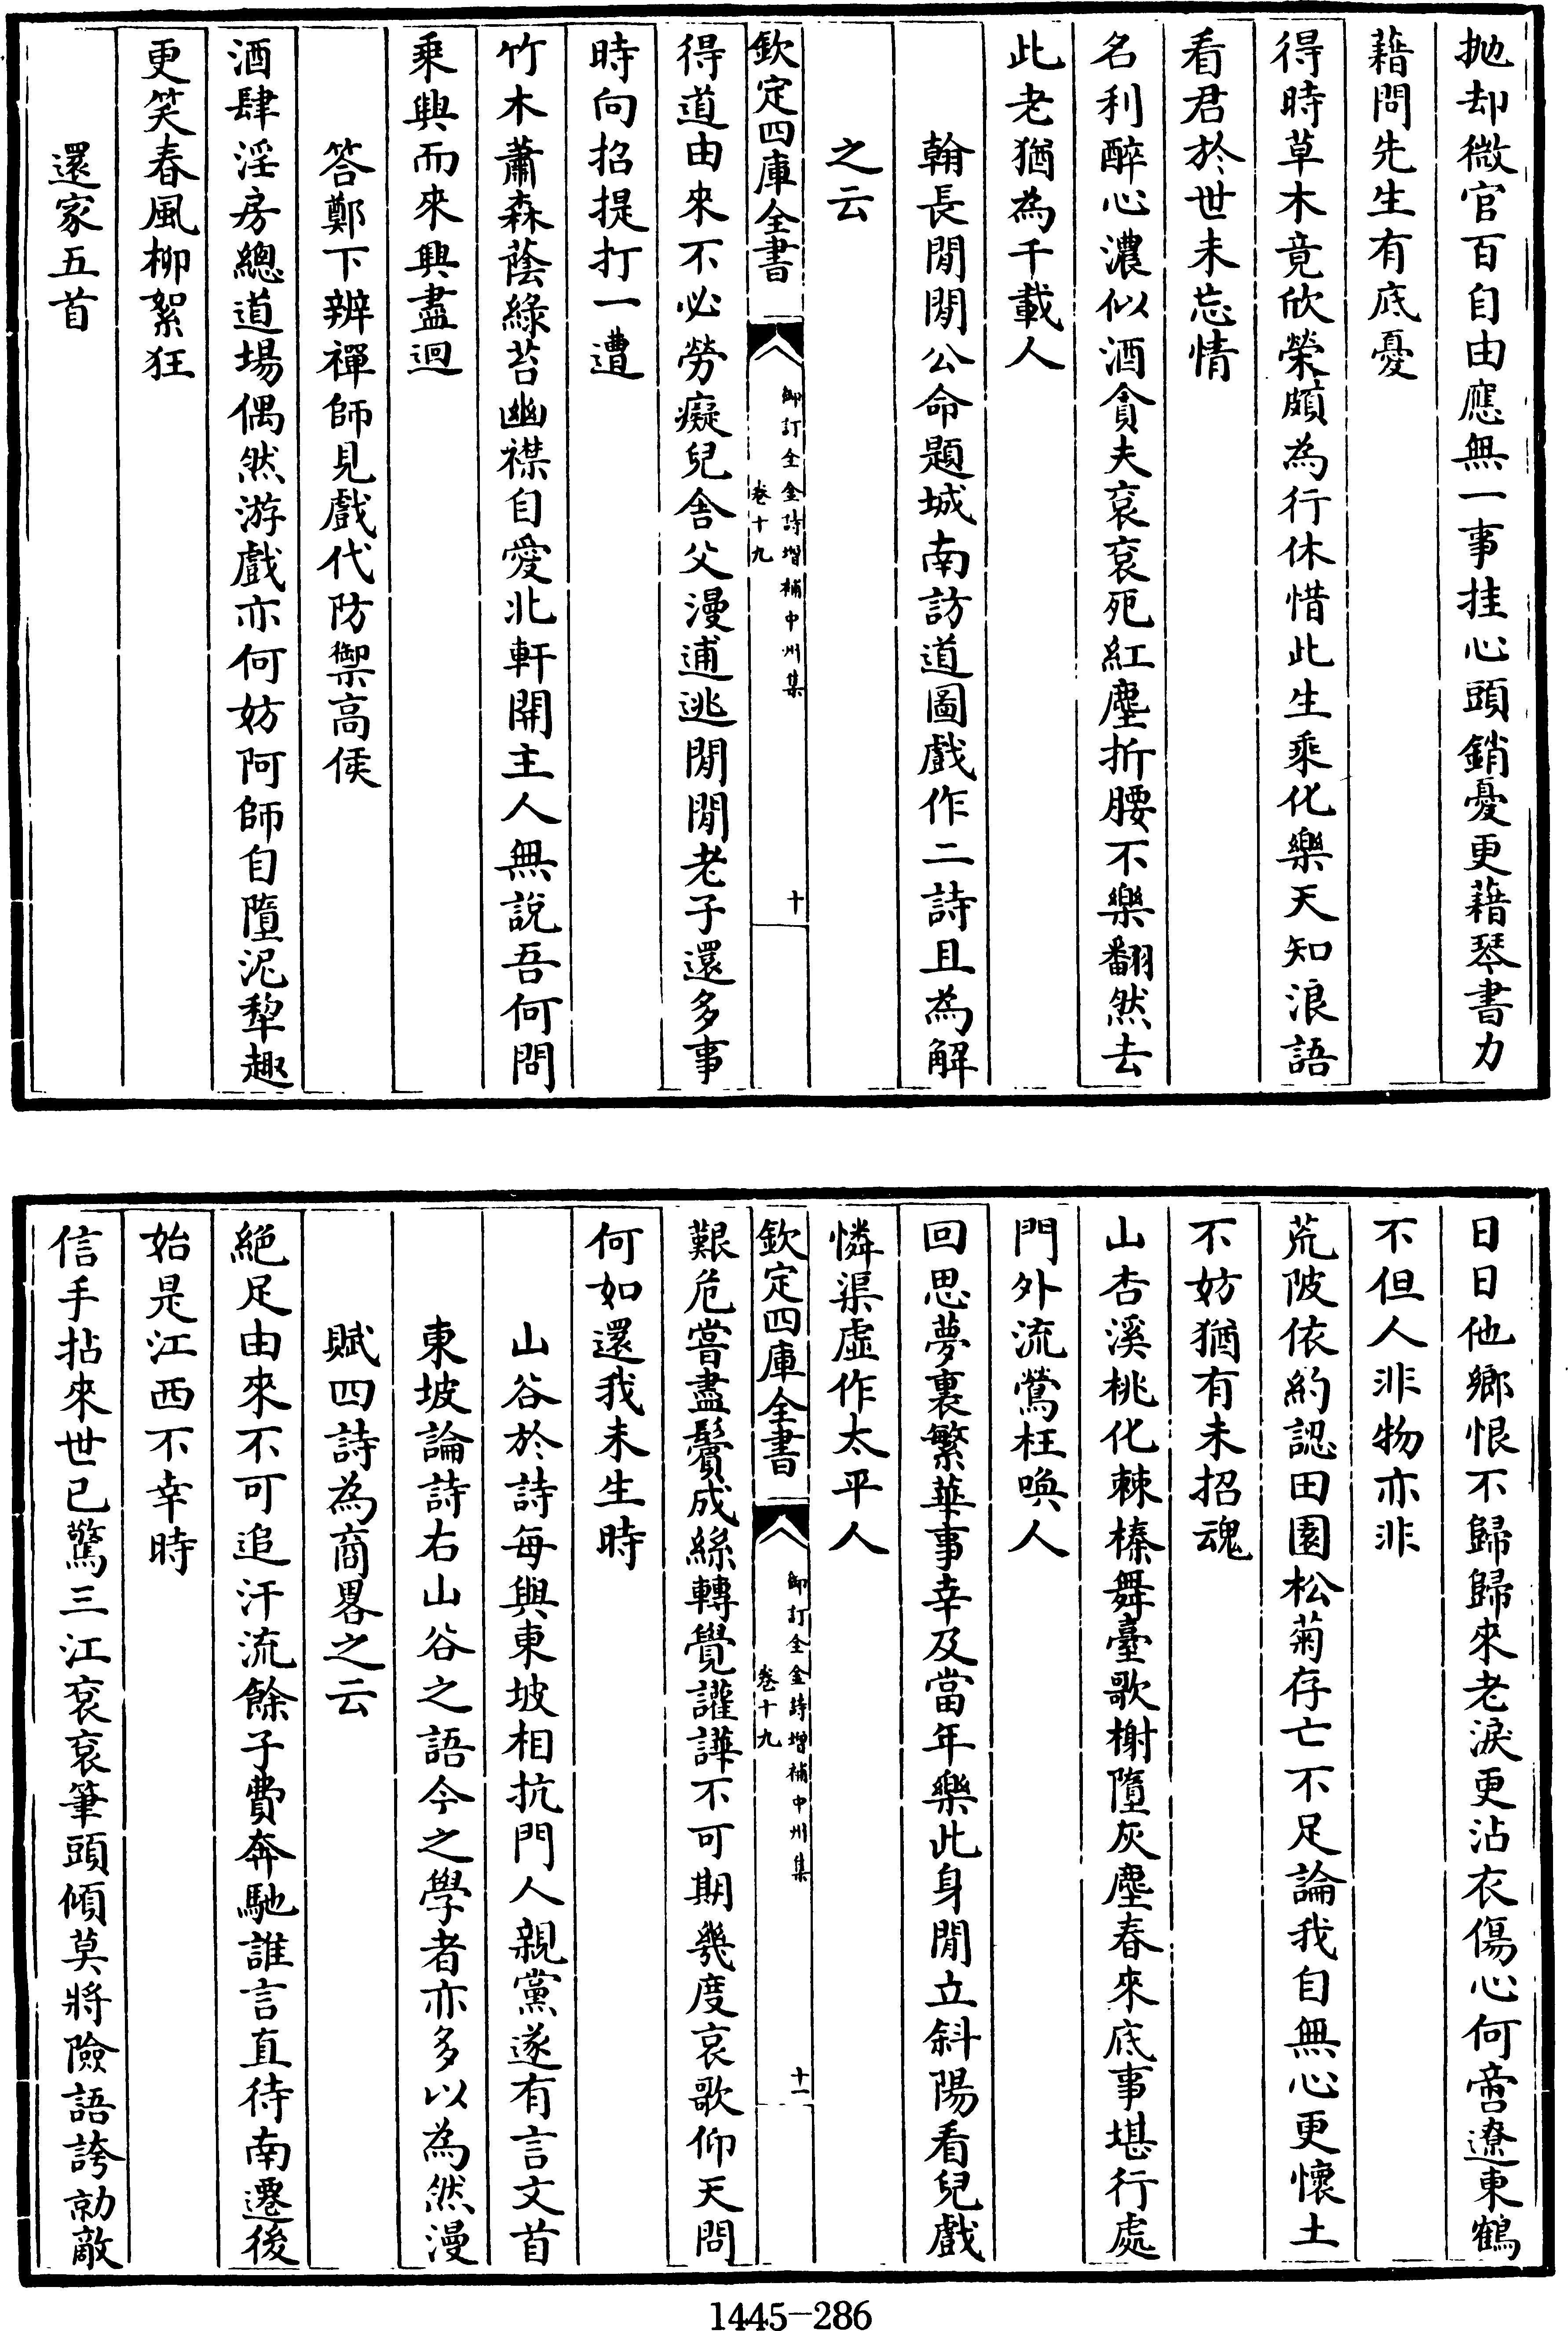 抛却微官百自由應無一事挂心頭銷憂更藉琴書力
藉問先生有底憂
得時草木竟欣榮頗為行休惜此生乘化樂天知浪語
看君於世未忘情
名利醉心濃似酒貪夫衮衮死紅塵折腰不樂翻然去
此老猶為千載人
翰長閒閒公命題城南訪道圖戲作二詩且為解
之云
欽定四庫全書
御訂全金詩增補中州集
卷十九
十
得道由來不必勞癡兒舍父漫逋逃閒閒老子還多事
時向招提打一遭
竹木蕭森蔭綠苔幽襟自愛北軒開主人無說吾何問
乘興而來興盡迴
答鄭下辨禪師見戲代防禦高侯
酒肆淫房總道場偶然游戲亦何妨阿師自墮泥犁趣
更笑春風柳絮狂
還家五首
日日他鄉恨不歸歸來老淚更沾衣傷心何啻遼東鶴
不但人非物亦非
荒陂依約認田園松菊存亡不足論我自無心更懷土
不妨猶有未招魂
山杏溪桃化棘榛舞臺歌榭墮灰塵春來底事堪行處
門外流鶯枉喚人
回思夢裏繁華事幸及當年樂此身閒立斜陽看兒戲
憐渠虛作太平人
欽定四庫全書
御訂全金詩增補中州集
卷十九
十一
艱危嘗盡鬢成絲轉覺讙譁不可期幾度哀歌仰天問
何如還我未生時
山谷於詩每與東坡相抗門人親黨遂有言文首
東坡論詩右山谷之語今之學者亦多以為然漫
賦四詩為商畧之云
絕足由來不可追汗流餘子費奔馳誰言直待南遷後
始是江西不幸時
信手拈來世已驚三江衮衮筆頭傾莫將險語誇勍敵
1445-286